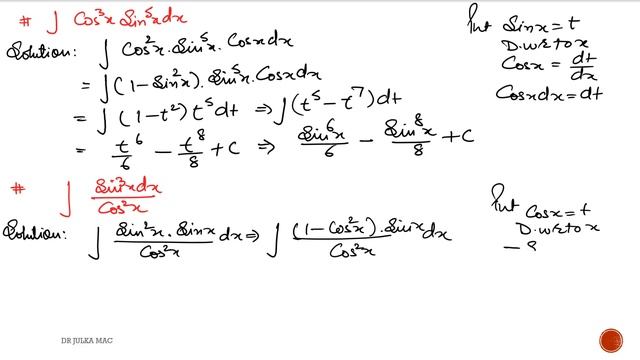 # ∫ Cos³x Sin⁵x dx
Solution: ∫ Cos²x . Sin⁵x . Cosx dx
= ∫ (1 - Sin²x) . Sin⁵x . Cosx dx
= ∫ (1 - t²) t⁵ dt ⇒ ∫ (t⁵ - t⁷) dt
= t⁶/6 - t⁸/8 + C ⇒ Sin⁶x/6 - Sin⁸x/8 + C
Put Sinx = t
D.w.r.to x
Cosx = dt/dx
Cosx dx = dt
# ∫ Sin³x dx/Cos²x
Solution: ∫ Sin²x . Sinx/Cos²x dx ⇒ ∫ (1 - Cos²x) . Sinx dx/Cos²x
Put Cosx = t
D.w.r.to x
- S
DR JULKA MAC